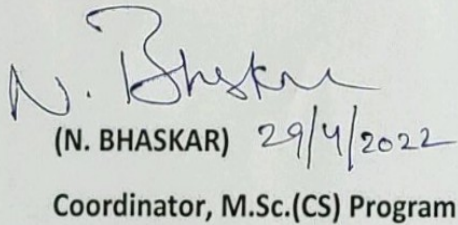 N. Bhaskar
(N. BHASKAR) 29/4/2022
Coordinator, M.Sc.(CS) Program